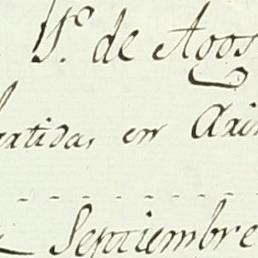 1º. de Agos
ertidas en Axi
Septiembre